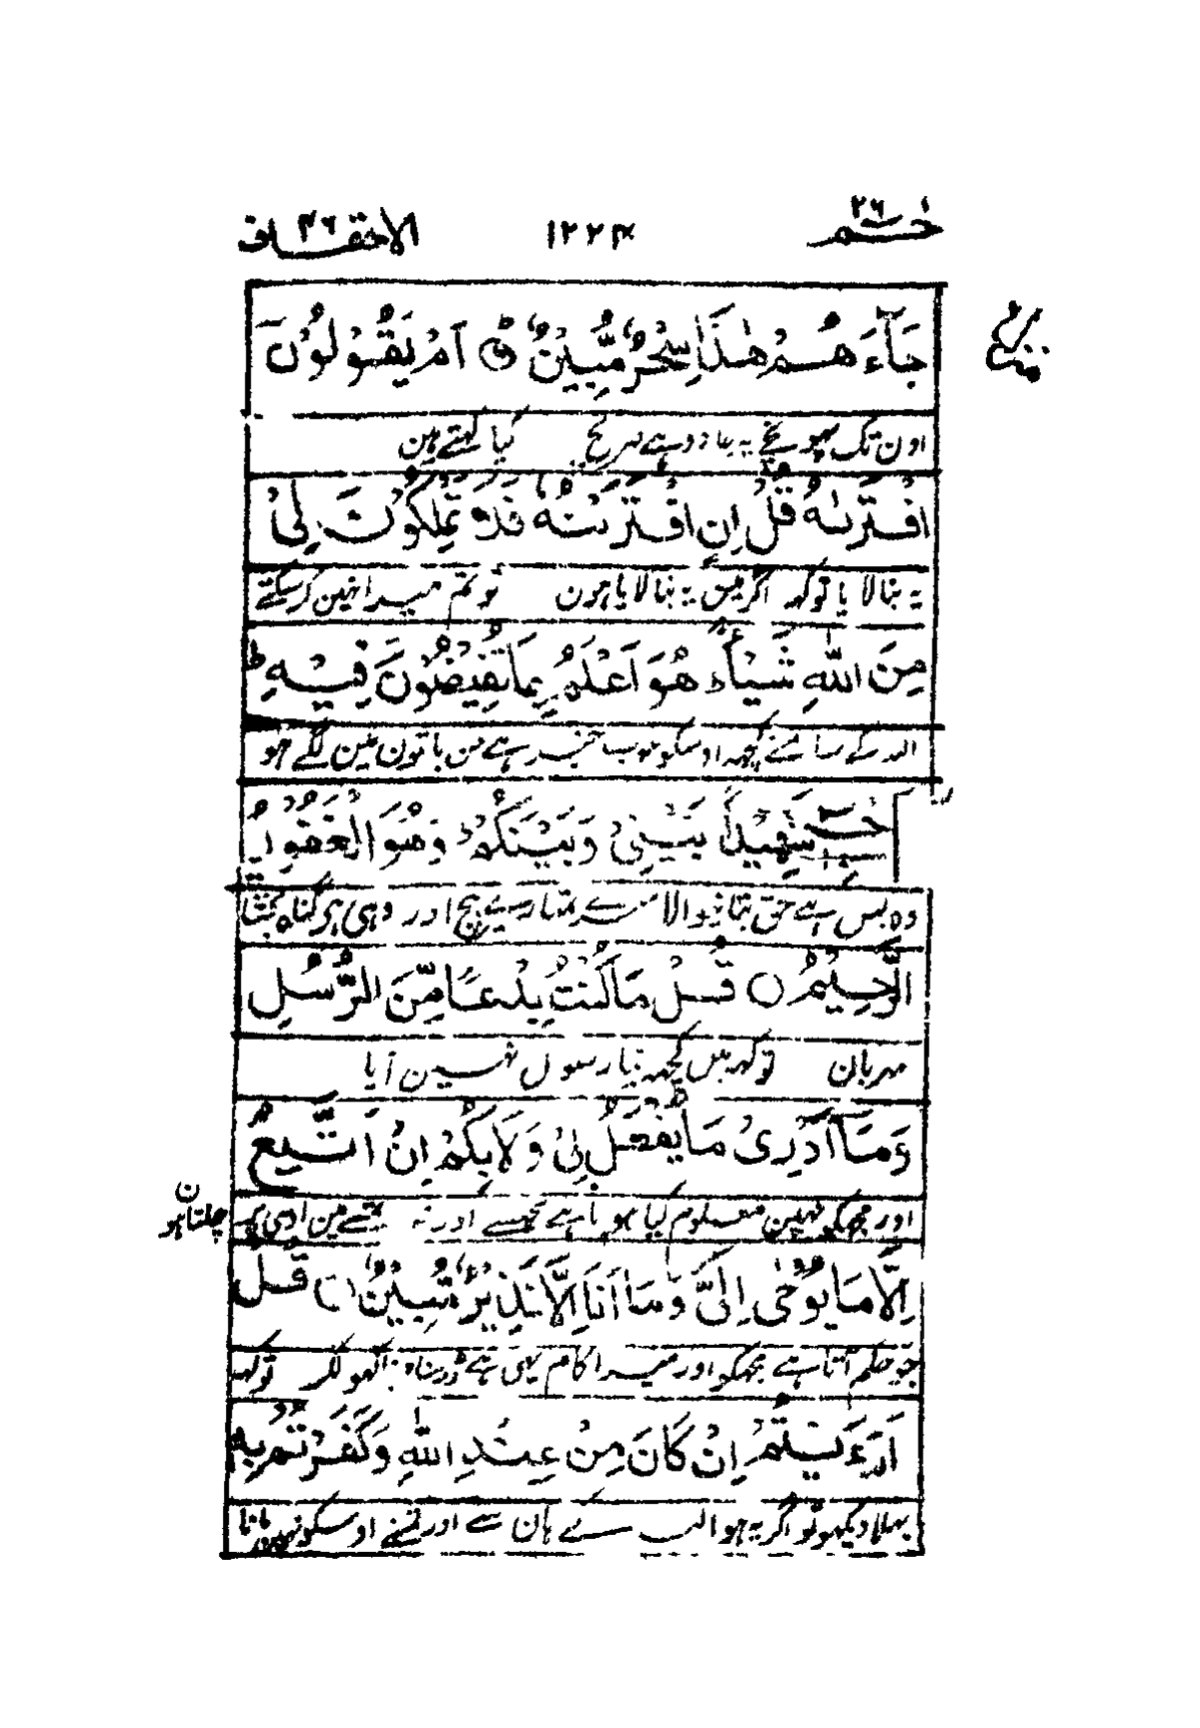 حٰم ٢٦ ١٢٢٤ الاحقاف ٤٦
جَآءَهُمْ هٰذَا سِحْرٌ مُّبِيْنٌ ۞ اَمْ يَقُوْلُوْنَ
اون تک پہونچے یہ جادو ہے صریح کیا کہتے ہین
افْتَرٰىهُ قُلْ اِنِ افْتَرَيْتُهٗ فَلَا تَمْلِكُوْنَ لِيْ
یہ بنا لایا توکہہ اگر میں یہ بنا لایا ہون تو تم میرا نہین کر سکتے
مِنَ اللّٰهِ شَيْـًٔا هُوَ اَعْلَمُ بِمَا تُفِيْضُوْنَ فِيْهِ ط
اللہ کے سامنے کچھہ اوسکو خوب خبر ہے جن باتون مین لگے ہو
شَهِيْدًا بَيْنِيْ وَبَيْنَكُمْ وَهُوَ الْغَفُوْرُ
وہ بس ہے حق بتانیوالا میرے تمہارے بیچ اور وہی ہے گناہ بخشتا
الرَّحِيْمُ ○ قُلْ مَا كُنْتُ بِدْعًا مِّنَ الرُّسُلِ
مہربان توکہہ میں کچھہ نیا رسول نہین آیا
وَمَآ اَدْرِيْ مَا يُفْعَلُ بِيْ وَلَا بِكُمْ اِنْ اَتَّبِعُ
اور مجھکو نہین معلوم کیا ہونا ہے مجھسے اور نہ تمسے مین اوسی پر چلتا ہون
اِلَّا مَا يُوْحٰى اِلَيَّ وَمَا اَنَا اِلَّا نَذِيْرٌ مُّبِيْنٌ ○ قُلْ
جو حکم آتا ہے مجھکو اور میرا کام یہی ہے ڈر سنانا کھولکر توکہہ
اَرَءَيْتُمْ اِنْ كَانَ مِنْ عِنْدِ اللّٰهِ وَكَفَرْتُمْ بِهٖ
بھلا دیکھو تو اگر یہ ہو اللہ کے ہان سے اور تمنے اوسکو نہین مانا